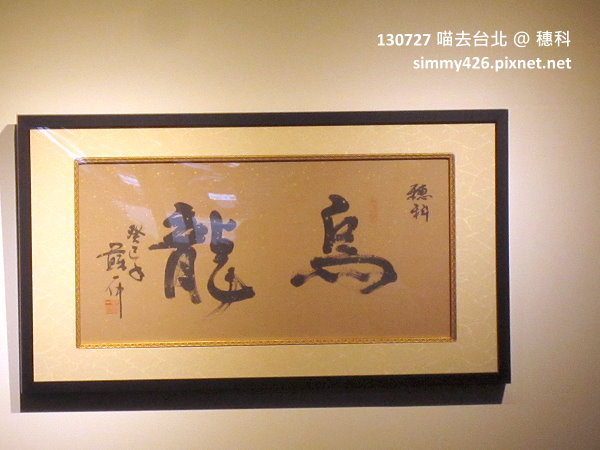 130727 喵去台北 @ 穗科
simmy426.pixnet.net
穗科
烏龍
癸巳年
蘇一仲